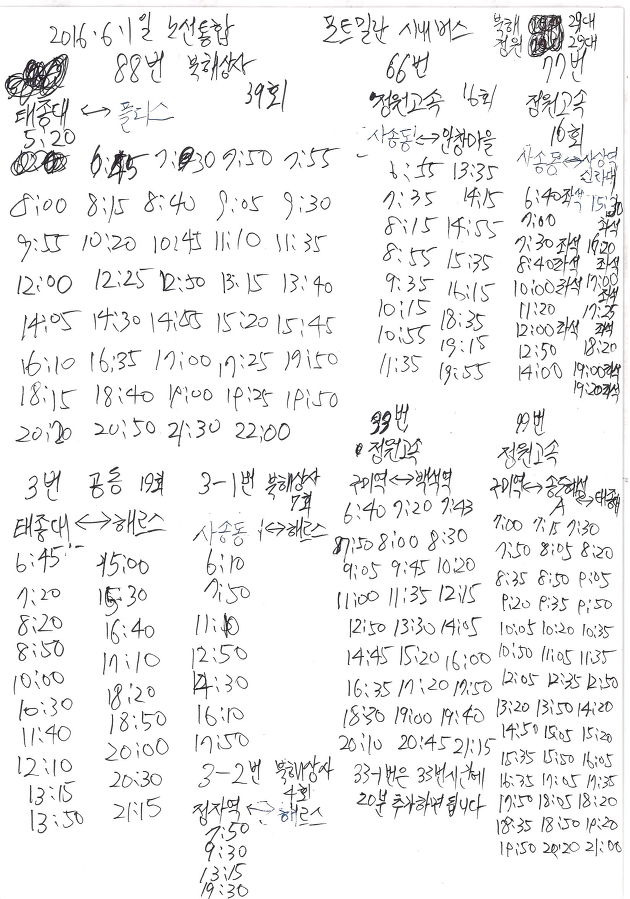 2016.6.1일 노선통합 포트밀란 시내버스
북해 29대
정원 29대
88번 북해상사
39회
태종대 ↔ 플러스
5:20
6:45 7:30 7:50 7:55
8:00 8:15 8:40 9:05 9:30
9:55 10:20 10:45 11:10 11:35
12:00 12:25 12:50 13:15 13:40
14:05 14:30 14:55 15:20 15:45
16:10 16:35 17:00 17:25 17:50
18:15 18:40 19:00 19:25 19:50
20:20 20:50 21:30 22:00
66번
정원고속 16회
사송동 ↔ 안창마을
6:55 13:35
7:35 14:15
8:15 14:55
8:55 15:35
9:35 16:15
10:15 18:35
10:55 19:15
11:35 19:55
77번
정원고속
16회
사송동 ↔ 사상역
신라대
6:40좌석 15:30
7:00 좌석
7:30좌석 16:20
8:40좌석 좌석
10:00좌석 17:00
좌석
11:20 17:25
12:00좌석 좌석
12:50 18:20
14:00 19:00좌석
19:20좌석
3번 공동 19회
태종대 ↔ 해르스
6:45 15:00
7:20 15:30
8:20 16:40
8:50 17:10
10:00 18:20
10:30 18:50
11:40 20:00
12:10 20:30
13:15 21:15
13:50
3-1번 북해상사
7회
사송동 ↔ 해르스
6:10
7:50
11:10
12:50
14:30
16:10
17:50
3-2번 북해상사
4회
정자역 ↔ 해르스
7:50
9:30
13:15
19:30
33번
정원고속
구미역 ↔ 백석역
6:40 7:20 7:43
7:50 8:00 8:30
9:05 9:45 10:20
11:00 11:35 12:15
12:50 13:30 14:05
14:45 15:20 16:00
16:35 17:20 17:50
18:30 19:00 19:40
20:10 20:45 21:15
33-1번은 33번시간에
20분 추가하면 됩니다
99번
정원고속
구미역 ↔ 송동해석
A ↔ 태종대
7:00 7:15 7:30
7:50 8:05 8:20
8:35 8:50 9:05
9:20 9:35 9:50
10:05 10:20 10:35
10:50 11:05 11:35
12:05 12:35 12:50
13:20 13:50 14:20
14:50 15:05 15:20
15:35 15:50 16:05
16:35 17:05 17:35
17:50 18:05 18:20
18:35 18:50 19:20
19:50 20:20 21:00